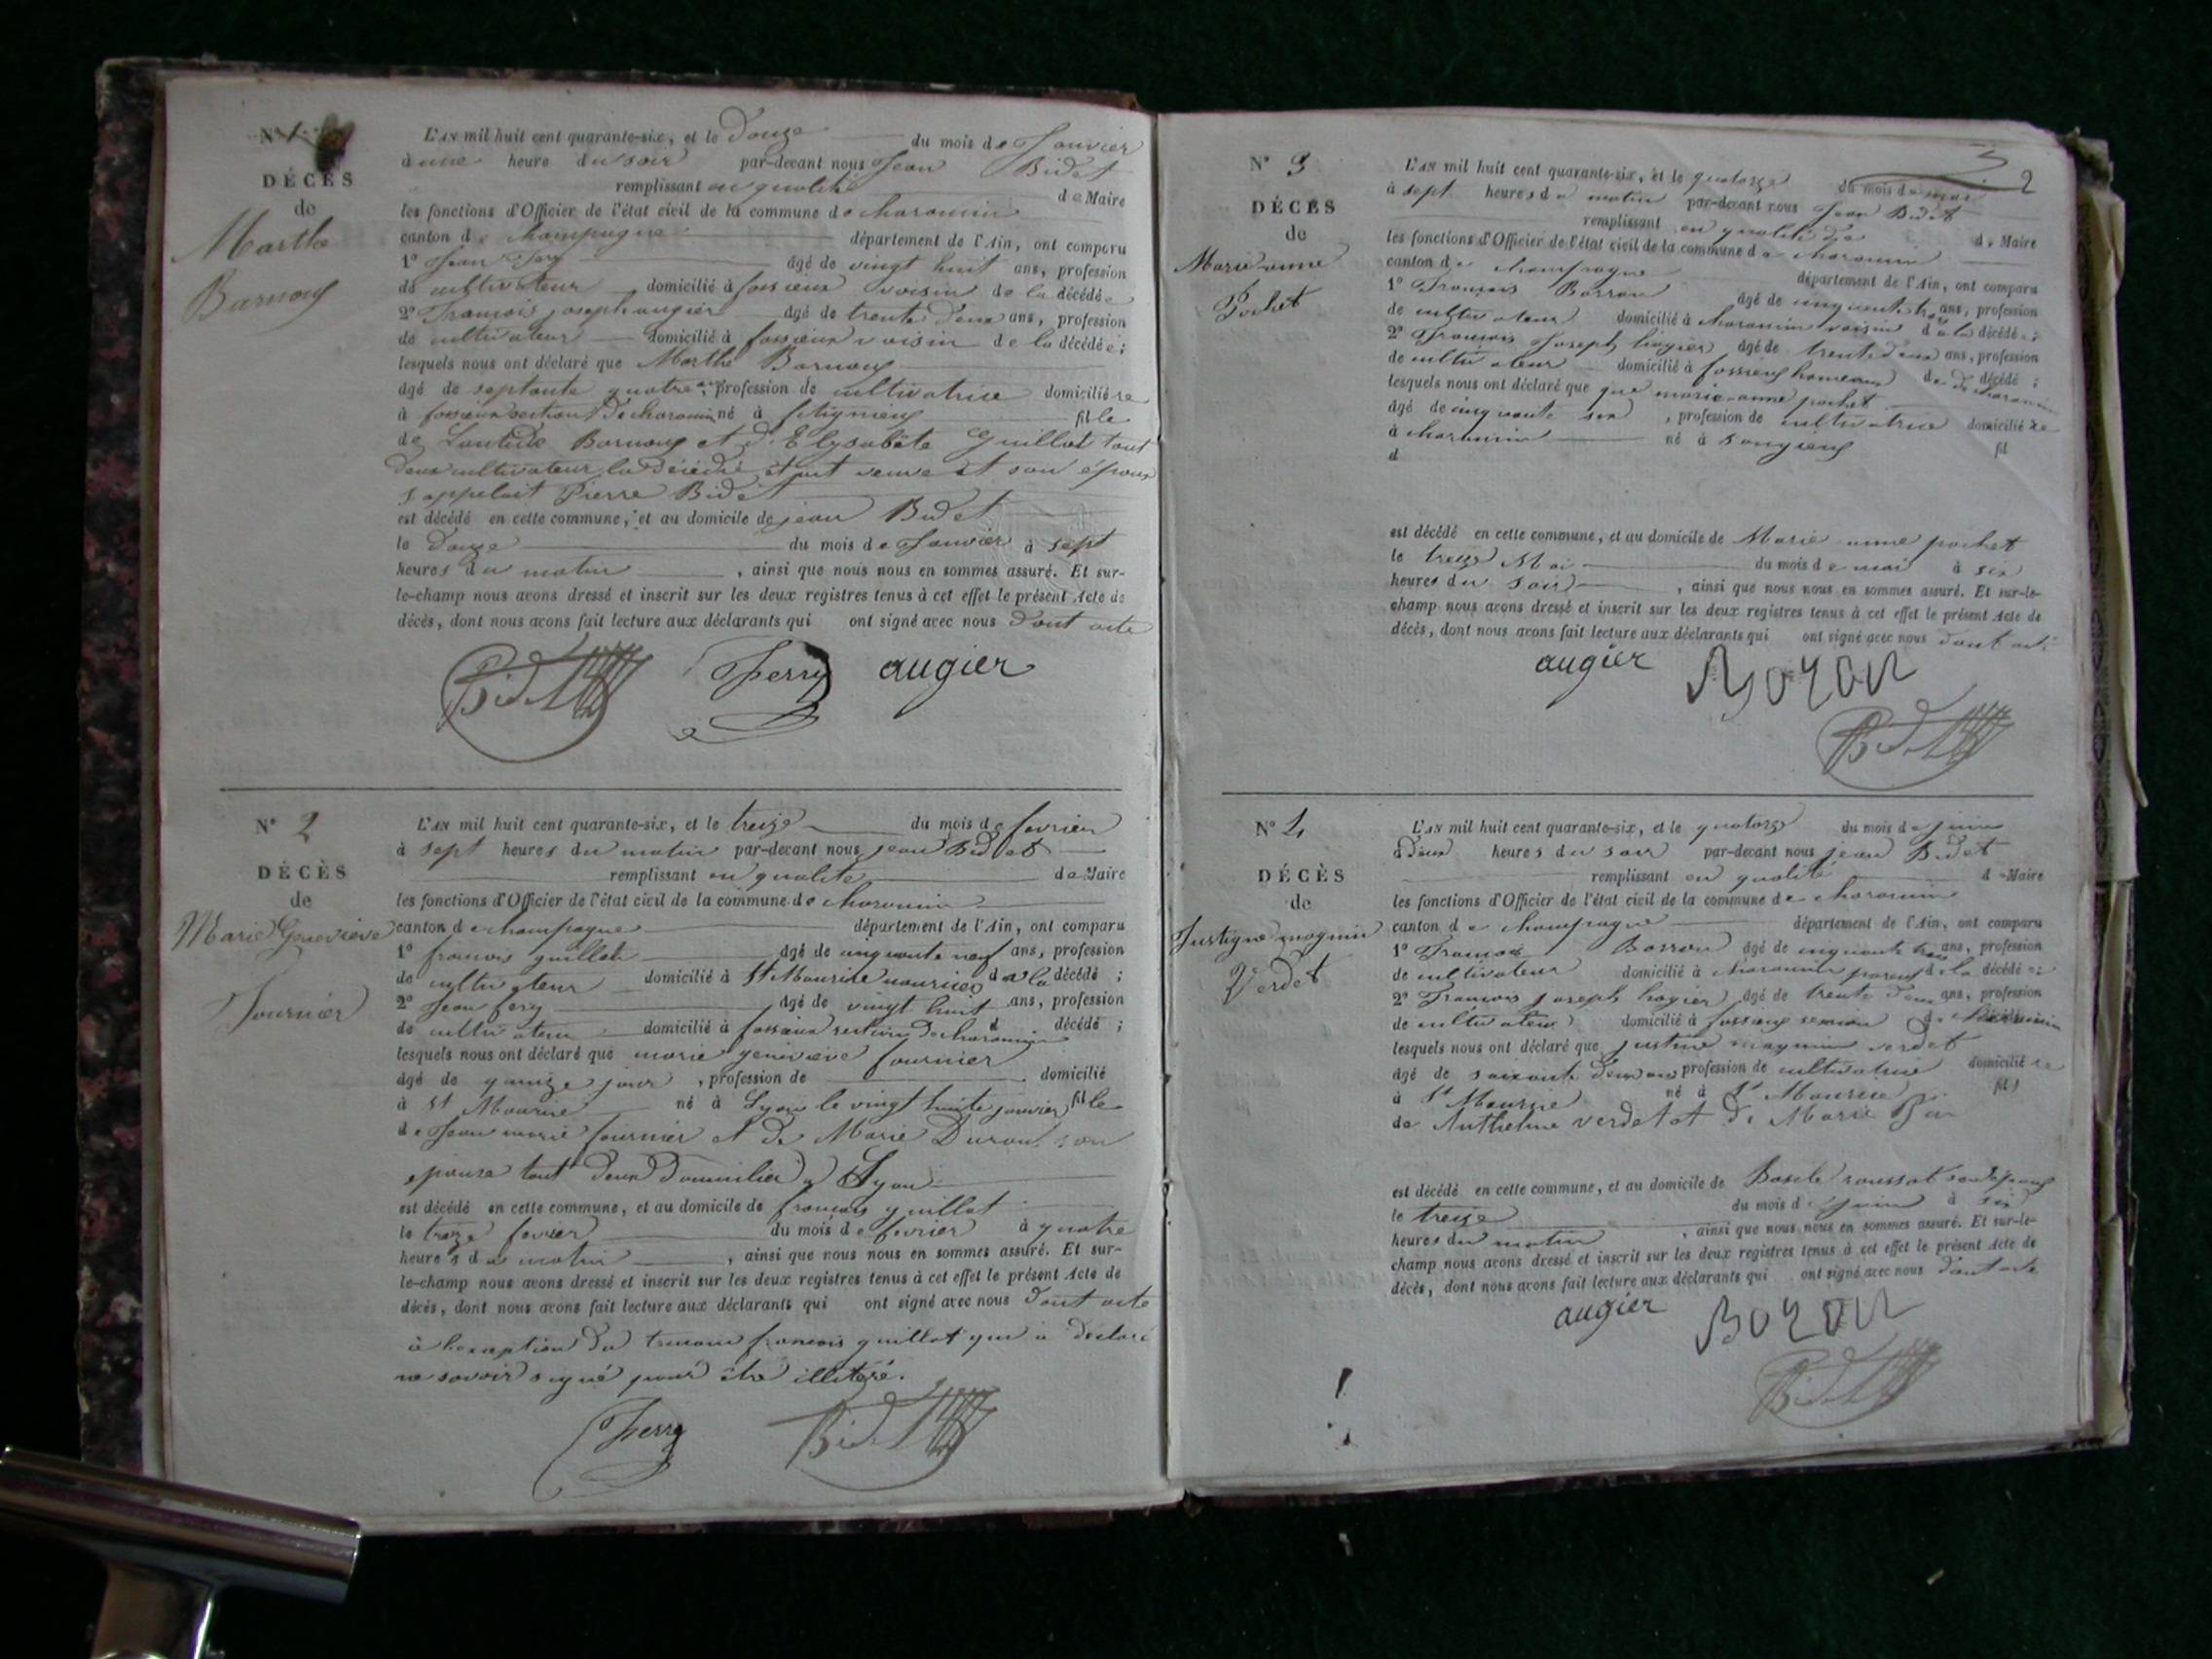 N° 1
DÉCÈS
de
Marthe
L'AN mil huit cent quarante-six, et le Douze du mois de Janvier
à une heure du soir par-devant nous Jean Bidet
remplissant en qualité de Maire
les fonctions d'Officier de l'état civil de la commune de charancin
canton de champagne département de l'Ain, ont comparu
1° Jean fery âgé de vingt huit ans, profession
de cultivateur domicilié à fossieux voisin de la décédée
2° françois joseph augier âgé de trente deux ans, profession
de cultivateur domicilié à fossieux voisin de la décédée ;
lesquels nous ont déclaré que Marthe
âgé de septante quatre ans, profession de cultivatrice domiciliée
à fossieux section De charancin né à fitignieux fille
de et d'Elysabête Guillot tout
Deux cultivateur la décédé était veuve et son époux
s'appelait Pierre Bidet
est décédé en cette commune, et au domicile de jean Bidet
le Douze du mois de Janvier à sept
heures du matin , ainsi que nous nous en sommes assuré. Et sur-
le-champ nous avons dressé et inscrit sur les deux registres tenus à cet effet le présent Acte de
décès, dont nous avons fait lecture aux déclarants qui ont signé avec nous Dont acte
Bidet Ferry augier
N° 2
DÉCÈS
de
Marie Geneviève
Fournier
L'AN mil huit cent quarante-six, et le treize du mois de fevrier
à sept heures du matin par-devant nous jean Bidet
remplissant en qualité de Maire
les fonctions d'Officier de l'état civil de la commune de charancin
canton de champagne département de l'Ain, ont comparu
1° francois guillot âgé de cinquante neuf ans, profession
de cultivateur domicilié à St Maurice nouricier de la décédé ;
2° Jean fery âgé de vingt huit ans, profession
de cultivateur domicilié à fossieux section De charancin d décédé ;
lesquels nous ont déclaré que marie geneviève fournier
âgé de quinze jour , profession de domicilié
à St Maurice né à Lyon le vingt huite janvier fille
de Jean marie fournier et de Marie Durant son
epouse tout Deux Domicilié a Lyon
est décédé en cette commune, et au domicile de francois guillot
le treize fevrier du mois de fevrier à quatre
heures du matin , ainsi que nous nous en sommes assuré. Et sur-
le-champ nous avons dressé et inscrit sur les deux registres tenus à cet effet le présent Acte de
décès, dont nous avons fait lecture aux déclarants qui ont signé avec nous Dont acte
à l'exception du francois guillot qui a déclaré
ne savoir signé pour être illitéré.
Ferry Bidet
2
N° 3
DÉCÈS
de
Marie anne
Pochet
L'AN mil huit cent quarante-six, et le quatorze du mois de mai
à sept heures du matin par-devant nous Jean Bidet
remplissant en qualité de d Maire
les fonctions d'Officier de l'état civil de la commune de charancin
canton de champagne département de l'Ain, ont comparu
1° François âgé de cinquante trois ans, profession
de cultivateur domicilié à charancin voisin de la décédé ;
2° François Joseph âgé de trente deux ans, profession
de cultivateur domicilié à fossieux hameaux de décédé ; De charancin
lesquels nous ont déclaré que que marie anne pochet
âgé de cinquante six , profession de cultivatrice domiciliée
à charancin né à songieux fil
d
est décédé en cette commune, et au domicile de Marie anne pochet
le treize Mai du mois de mai à six
heures du soir , ainsi que nous nous en sommes assuré. Et sur-le-
champ nous avons dressé et inscrit sur les deux registres tenus à cet effet le présent Acte de
décès, dont nous avons fait lecture aux déclarants qui ont signé avec nous Dont acte
augier Bidet
N° 4
DÉCÈS
de
Verdet
L'AN mil huit cent quarante-six, et le quatorze du mois de juin
à Deux heures du soir par-devant nous jean Bidet
remplissant en qualité de Maire
les fonctions d'Officier de l'état civil de la commune de charancin
canton de champagne département de l'Ain, ont comparu
1° François âgé de cinquante trois ans, profession
de cultivateur domicilié à charancin de la décédé ;
2° François joseph âgé de trente deux ans, profession
de cultivateur domicilié à fossieux section
lesquels nous ont déclaré que justine verdet
âgé de soixante deux an profession de cultivatrice domiciliée
à St Maurice né à St Maurice fil
de Anthelme verdet et De Marie
est décédé en cette commune, et au domicile de roussot
le treize du mois de juin à six
heures du matin , ainsi que nous nous en sommes assuré. Et sur-le-
champ nous avons dressé et inscrit sur les deux registres tenus à cet effet le présent Acte de
décès, dont nous avons fait lecture aux déclarants qui ont signé avec nous Dont acte
augier Bidet